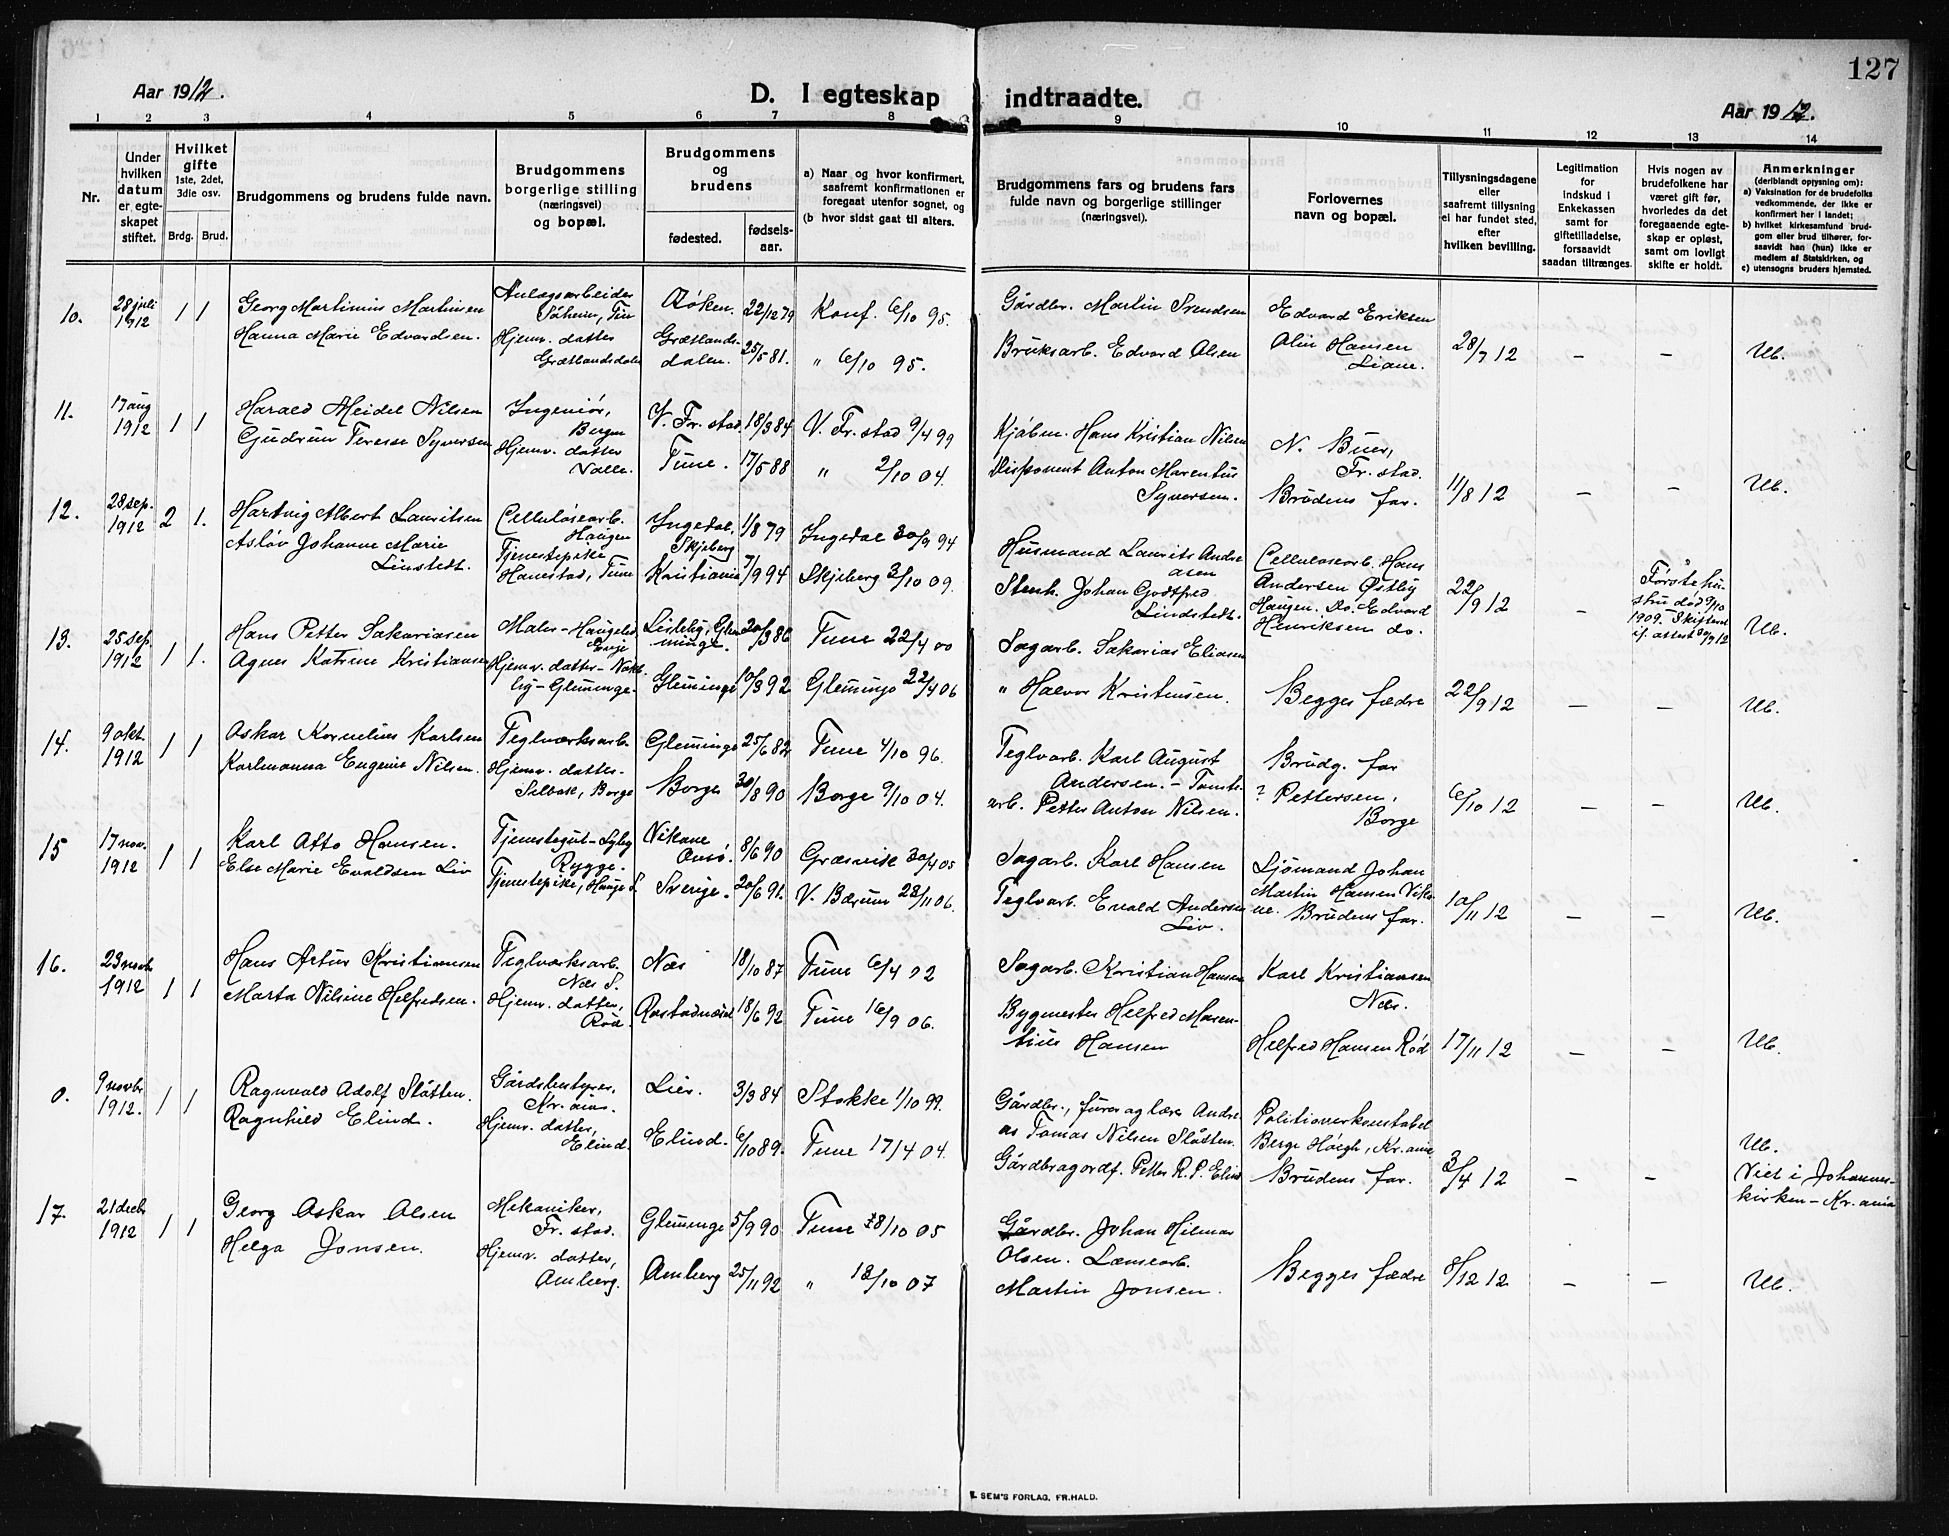 127
Aar 1912.
D. I egteskap indtraadte.
Aar 1912.
1 2 3 4 5 6 7 8 9 10 11 12 13 14
Nr.
Under hvilken datum er egteskapet stiftet.
Hvilket gifte 1ste, 2det, 3die osv.
Brdg. Brud.
Brudgommens og brudens fulde navn.
Brudgommens borgerlige stilling (næringsvei) og bopæl.
Brudgommens og brudens
fødested.
fødselsaar.
a) Naar og hvor konfirmert, saafremt konfirmationen er foregaat utenfor sognet, og
(b hvor sidst gaat til alters.
Brudgommens fars og brudens fars fulde navn og borgerlige stillinger (næringsvei).
Forlovernes navn og bopæl.
Tillysningsdagene eller saafremt tillysning ei har fundet sted, efter hvilken bevilling.
Legitimation for indskud i Enkekassen samt for giftetilladelse, forsaavidt saadan tiltrænges.
Hvis nogen av brudefolkene har været gift før, hvorledes da det foregaaende egteskap er opløst, samt om lovligt skifte er holdt.
Anmerkninger (deriblandt opjysning om):
a) Vaksination for de brudefolks vedkommende, der ikke er konfirmert her i landet;
b) hvilket kirkesamfund brudgom eller brud tilhører, forsaavidt han (hun) ikke er medlem af Statskirken, og
c) utensogns bruders hjemsted.
10. 28 juli 1912 1 1 Georg Martinius Martinsen Anlægsarbeider Røken. 22/12 79 Konf. 6/10 95. Gårdbr. Martin Svendsen Edvard Eriksen
Hanna Marie Edvardsen. Hjemv. datter Grætlandsdalen Grætlandsdalen. 25/5 81. " 6/10 95. Bruksarb. Edvard Olsen Olin Hansen 28/7 12 – – Ub.
11. 17 aug 1912 1 1 Harald Meidel Nilsen Ingeniør, Bergen V. Fr.stad 18/3 84 V. Fr.stad 9/4 99 Kjøbm. Hans Kristian Nilsen N. Buer, Fr.stad.
Gudrun Terese Syversen Hjemv. datter Valle. Tune. 17/5 88 " 2/10 04. Disponent Anton Marentius Syversen. Brudens far. 11/8 12 – – Ub.
12. 28 sep. 1912 2 1. Hartvig Albert Lauritsen Cellulosearb. Haugen Ingedal, Skjeberg 1/8 79 Ingedal 30/9 94 Husmand Laurits Andreasen Cellulosearb. Hans Andersen Østby Haugen.
Asløv Johanne Marie Linstedt. Tjenestepike Hanestad, Tune Kristiania 7/9 94 Skjeberg 3/10 09. Stenh. Johan Godtfred Lindstedt. Do. Edvard Henriksen do. 22/9 12 – Første hustru død 9/10 1909. Skiftet if. attest Ub.
13. 25 sep. 1912 1 1. Hans Petter Sakariasen Maler – Lisleby, Glemminge. 20/3 86 Tune 22/4 00 Sagarb. Sakarias Eliasen
Agnes Katrine Kristiansen Hjemv. datter – Nabbetorp Glemminge 10/3 92 Glemminge 22/4 06 " Halvor Kristensen. Begges fædre 22/9 12 – – Ub.
14. 9 okt. 1912 1 1 Oskar Kornelius Karlsen Teglværksarb. Glemminge 25/6 82 Tune 4/10 96. Teglvarb. Karl August Andersen. – Brudg. far
Karlmanna Eugenie Nilsen. Hjemv. datter. Selbak, Borge Borge 30/8 90 Borge 9/10 04. Tomtearb. Petter Anton Nilsen. ? Pettersen, Borge 6/10 12 – – Ub.
15 17 nov. 1912 1 1 Karl Otto Hansen. Tjenestegut – Rygge. Vikane Onsø. 8/6 90 Græsvik 30/4 05 Sagarb. Karl Hansen Sjømand Johan Martin Hansen Vikane.
Else Marie Evaldsen Liv Tjenestepike, Sverige. 20/6 91. V. Bærum 28/11 06. Teglvarb. Evald Andersen Liv. Brudens far. 10/11 12 – – Ub.
16. 23 novb. 1912 1 1 Hans Artur Kristiansen Teglværksarb. Næs S. Næs 18/10 87 Tune 6/4 02 Sagarb. Kristian Hansen Karl Kristiansen Næs.
Marta Nilsine Helfredsen. Hjemv. datter, Rød. 18/6 92 Tune 16/9 06. Bygmester Helfred Marentius Hansen Helfred Hansen Rød 17/11 12 – – Ub.
0. 9 novbr. 1912. 1 1 Ragnvald Adolf Slåtten. Gårdsbestyrer. Kr.aia. Lier. 3/3 84 Stokke 1/10 99. Gårdbr., furer og lærer Andreas Tomas Nilsen Slåtten. Politioverkonstabel Berge Høegh, Kr.ania
Ragnhild Elind. Hjemv. datter, Elind. Elind. 6/10 89. Tune 17/4 04. Gårdbr og ordf. Petter R. P. Elind Brudens far. 3/4 12 – – Ub. Viet i Johanneskirken – Kr.ania
17. 21 decb. 1912 1 1 Georg Oskar Olsen Mekaniker, Fr.stad. Glemminge 5/9 90 Tune 8/10 05 Gårdbr. Johan Hilmar Olsen.
Helga Jonsen. Hjemv. datter, Amberg. Amberg 25/11 92 " 18/10 07 Lænsearb. Martin Jonsen. Begges fædre 8/12 12 – – Ub.
E. SEM'S FORLAG, FR.HALD.